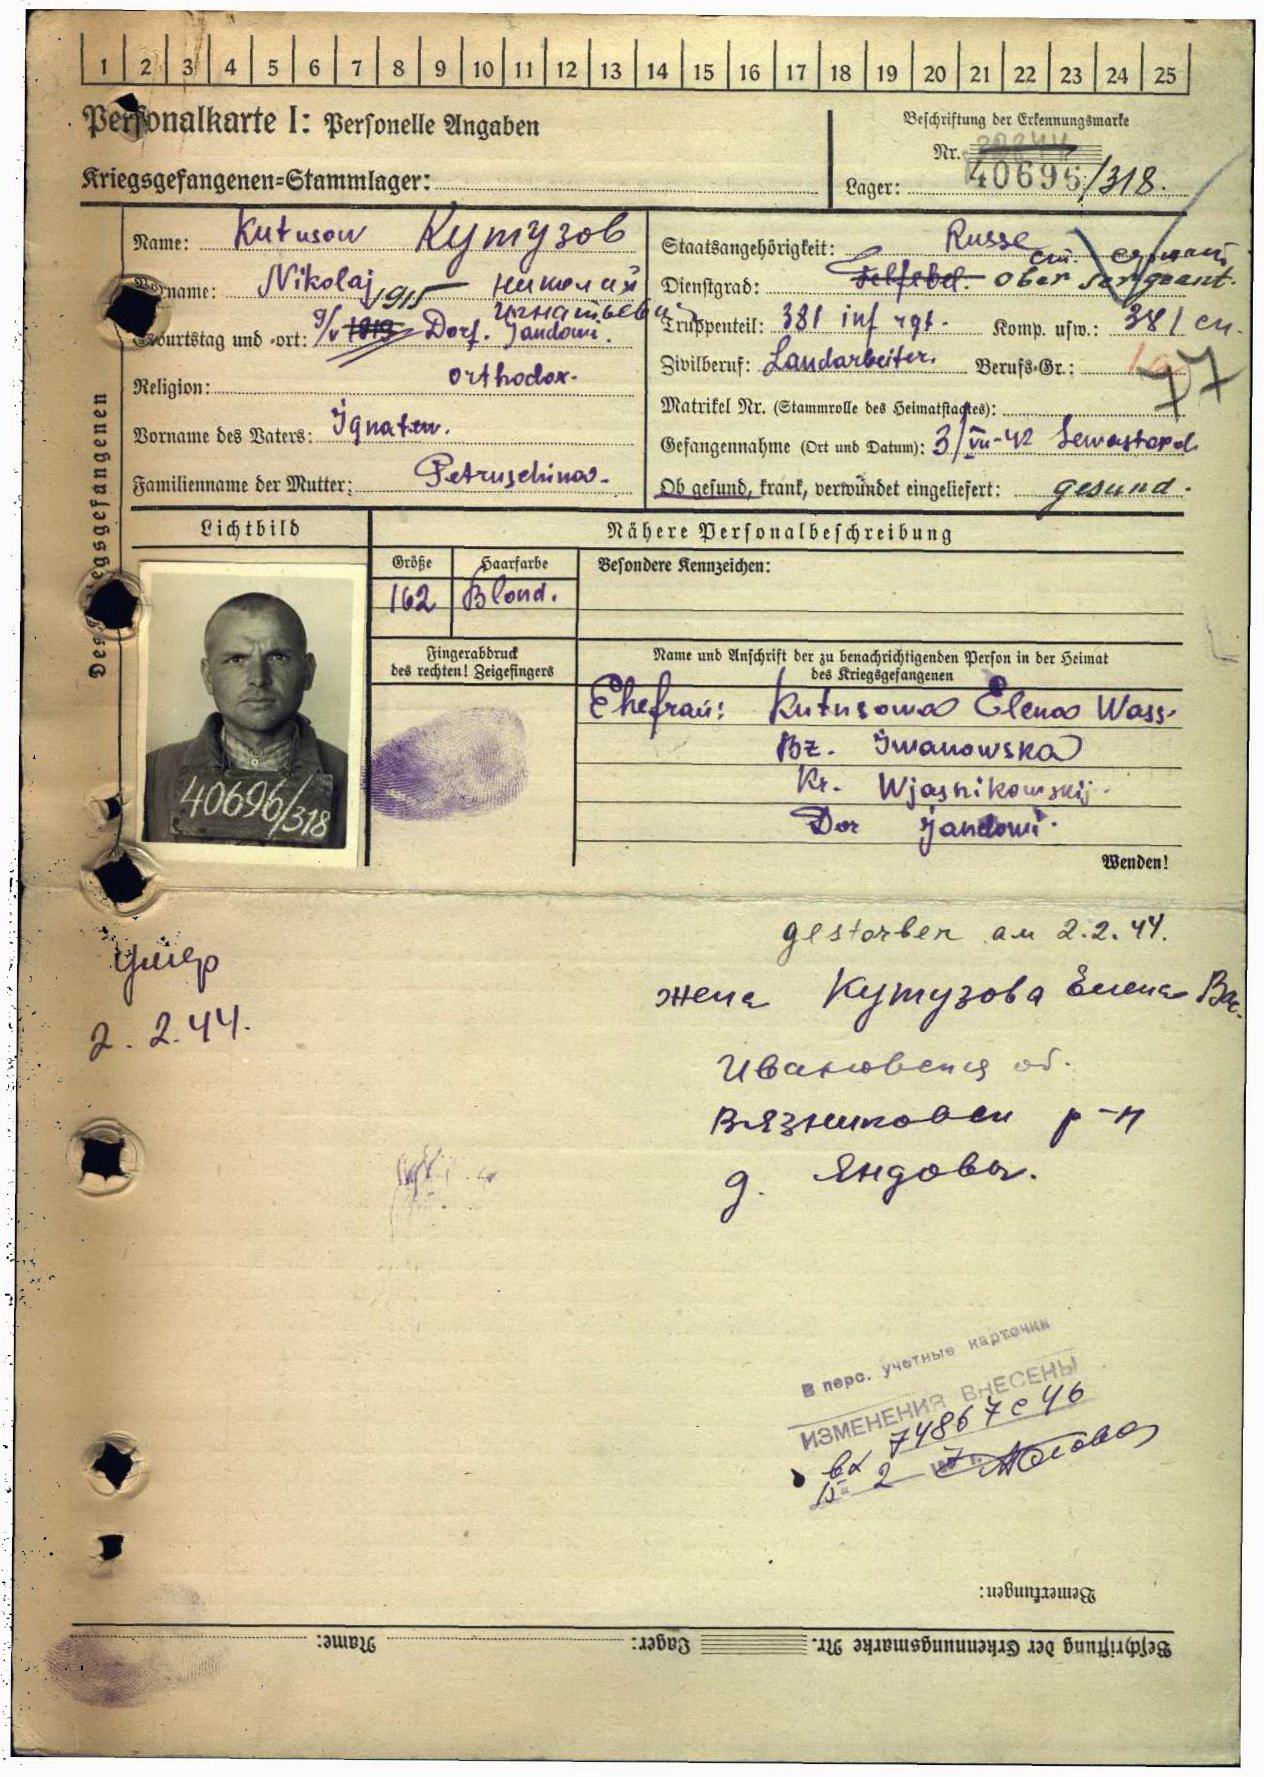 1 2 3 4 5 6 7 8 9 10 11 12 13 14 15 16 17 18 19 20 21 22 23 24 25
Personalkarte I: Personelle Angaben
Beschriftung der Erkennungsmarke
Nr.
Kriegsgefangenen-Stammlager:
Lager: 40696/318.
Des Kriegsgefangenen
Name: Kutusow Кутузов
Vorname: Nikolaj николай
игнатьеви
Geburtstag und -ort: 9/V 1919 1915 Dorf. Jandowi.
Religion: orthodox.
Vorname des Vaters: Ignatew.
Familienname der Mutter: Petruschina.
Staatsangehörigkeit: Russe
ст. сержант
Dienstgrad: Felfebel. ober sergeant.
Truppenteil: 381 inf rgt. Komp. usw.: 381 сп.
Zivilberuf: Landarbeiter. Berufs-Gr.:
77
Matrikel Nr. (Stammrolle des Heimatstaates):
Gefangennahme (Ort und Datum): 3/VII-42 Sewastopol
Ob gesund, krank, verwundet eingeliefert: gesund.
Lichtbild
Nähere Personalbeschreibung
Größe Haarfarbe Besondere Kennzeichen:
162 Blond.
40696/318
Fingerabdruck
des rechten! Zeigefingers
Name und Anschrift der zu benachrichtigenden Person in der Heimat
des Kriegsgefangenen
Ehefrau: Kutusowa Elena Wass.
Bz. Iwanowska
Kr. Wjasnikowskij.
Dor Jandowi.
Wenden!
gestorben am 2.2.44.
умер
2. 2.44.
жена Кутузова Елена Вас.
Ивановская об.
Вязниковск р-н
д. Яндовы.
В перс. учетные карточки
ИЗМЕНЕНИЯ ВНЕСЕНЫ
вх 74867с 46
Bemerkungen:
Beschriftung der Erkennungsmarke Nr. Lager: Name: